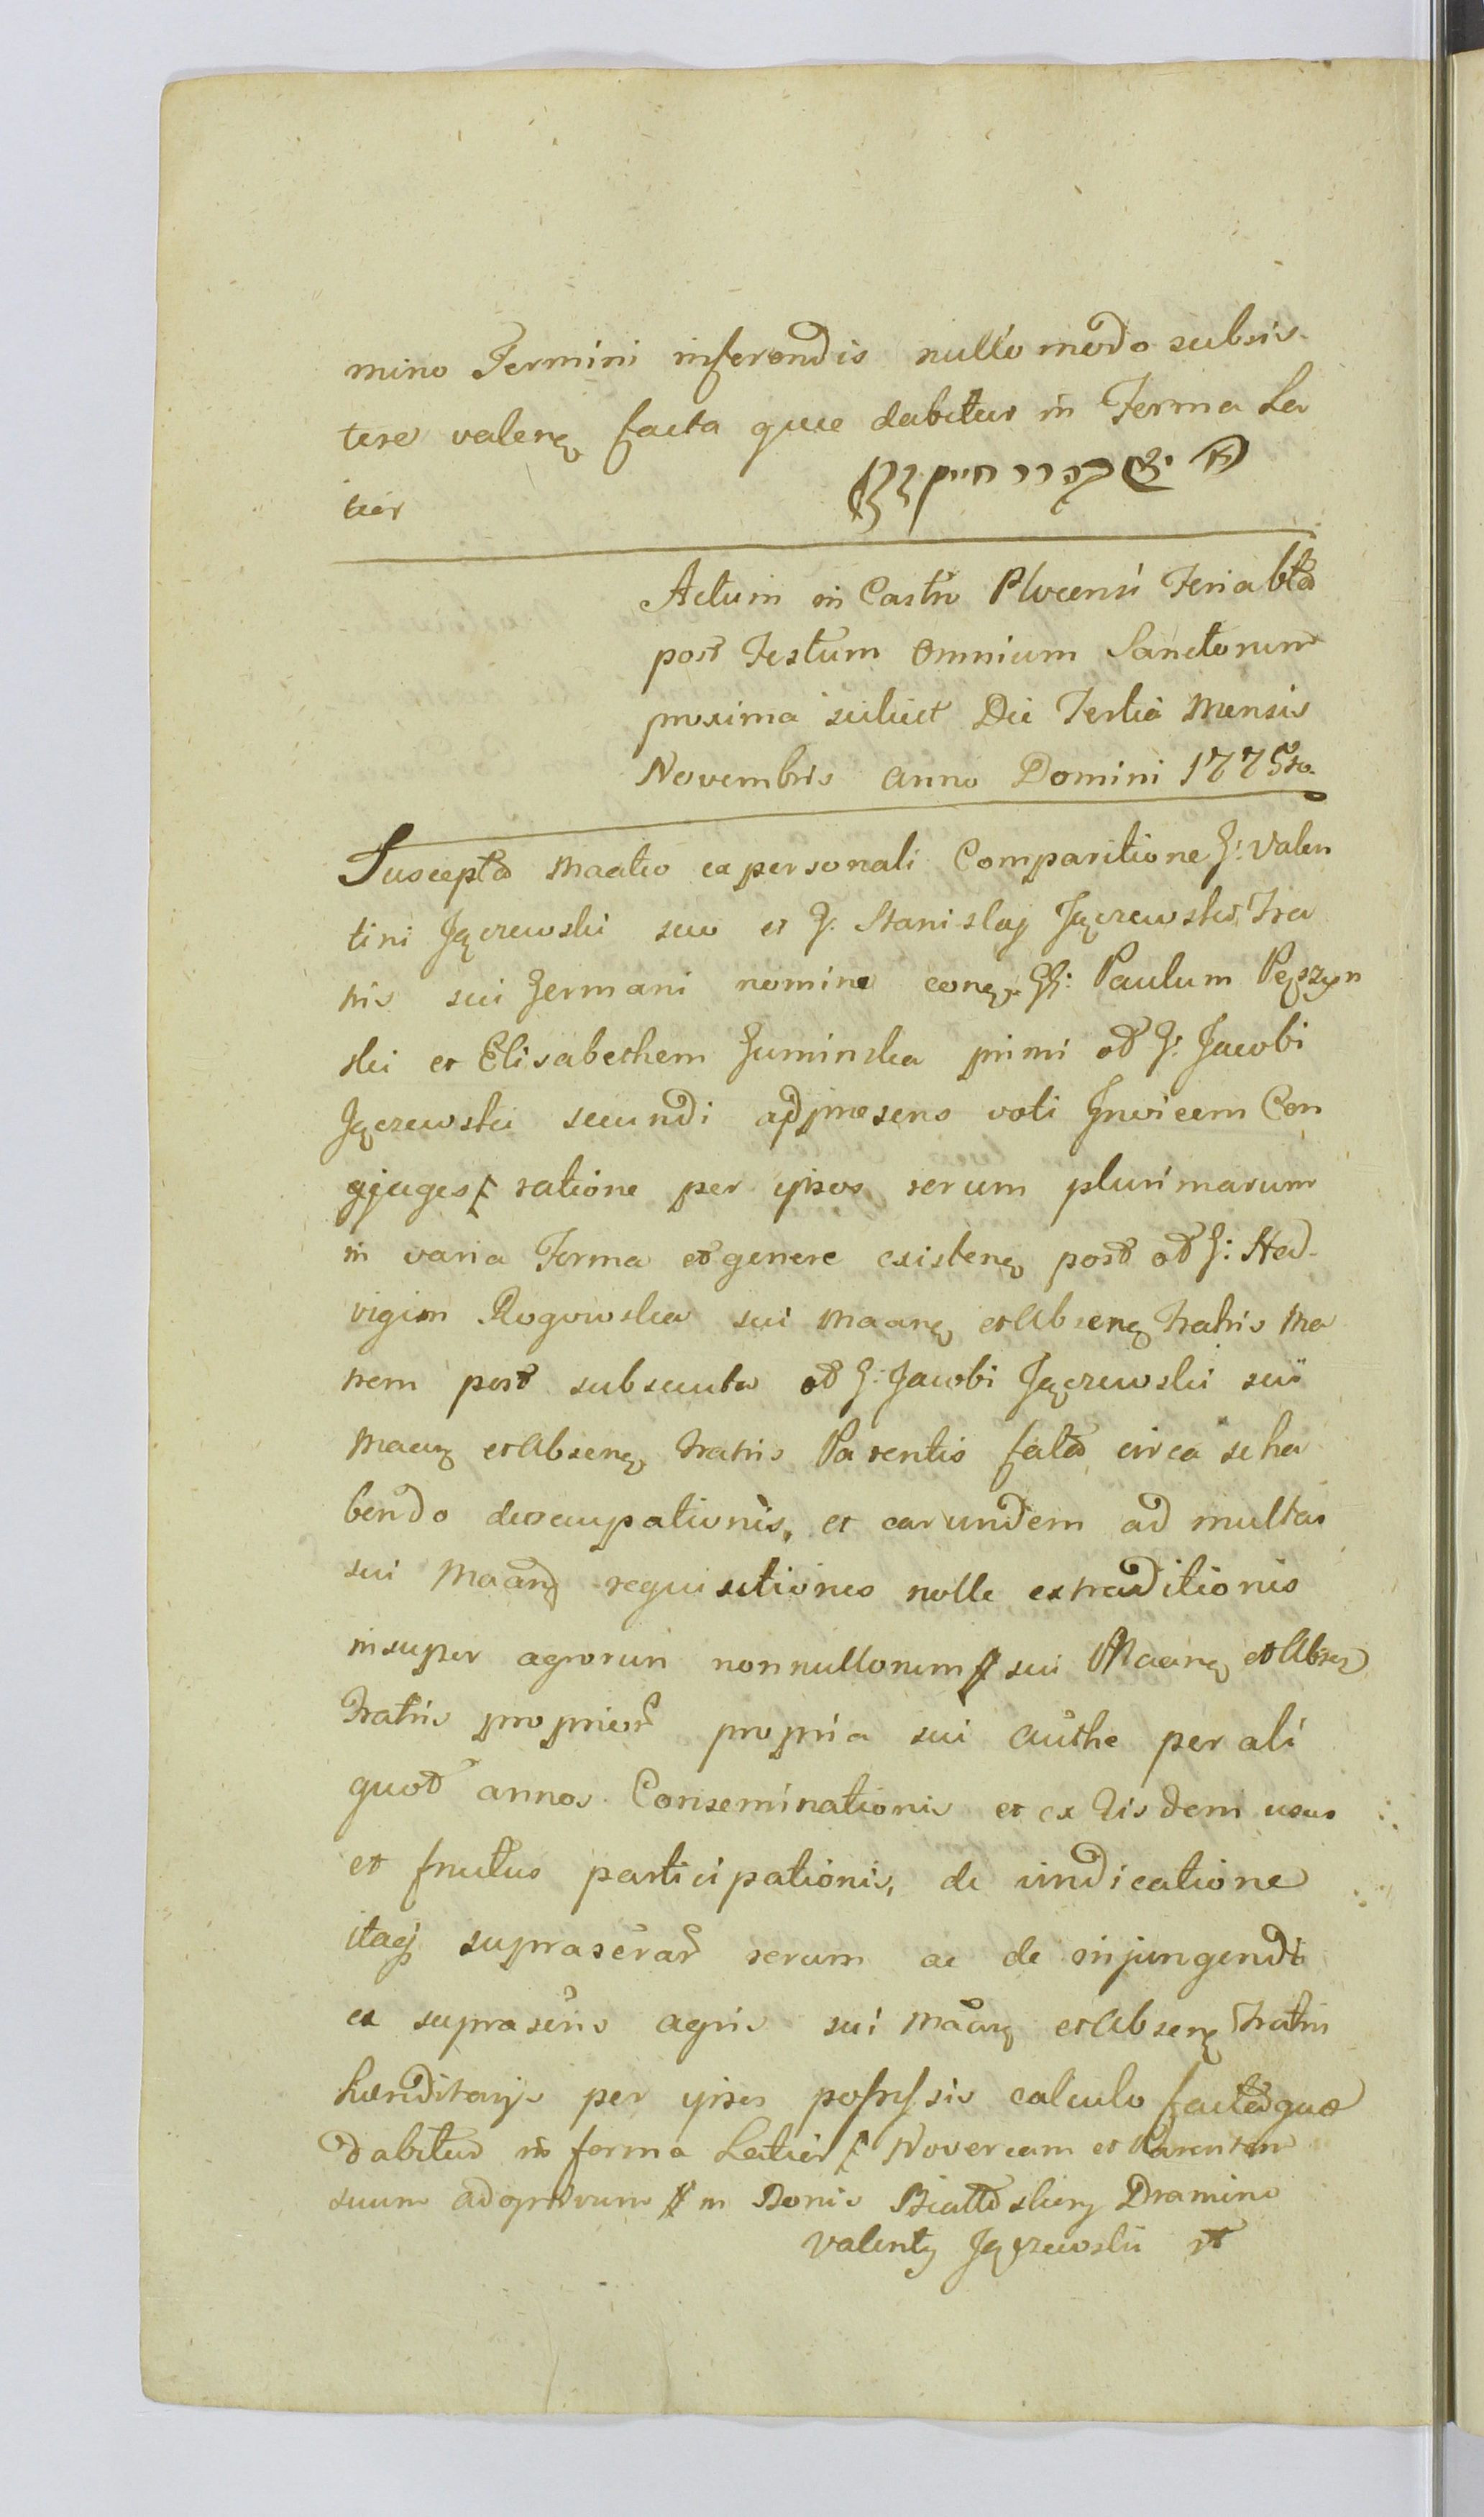 mino Termini inferendis nullo modo subsis-
tere valenq facta quae dabitur in Forma La
tior
Actum in Castro Plocensi Feria 6ta
post Festum Omnium Sanctorum
proxima scilicet Die Tertia Mensis
Novembris Anno Domini 1775to.
Suscepta Maatio ex personali Comparitione G: Valen
tini Jączewski suo et G: Stanislaj Jączewski Fra
tris sui Germani nomine conq GG: Paulum Pęszyn
ski et Elisabethem Zuminska primi od G: Jacobi
Jączewski secundi ad praesens voti Invicem Con
jjuges ratione per ipsos rerum plurimarum
in varia Forma et genere existenq post od G: Hed-
vigim Rogowska sui Maanq et Absenq Fratris Ma
trem post subsecuta od G: Jacobi Jączewski sui
Maanq et Absenq Fratris Parentis fata circa se ha
bendo deoccupationis, et earundem ad multas
sui Maanq requisitiones nolle extraditionis
insuper agrorum nonnullorum sui Maanq et Absenq
Fratris proprior propria sui Authe per ali
quot annos Conseminationis et ex Iisdem usus
et fructus participationis, de vindicatione
itaq suprascrar rerum ac de injungendi
ex suprascris agris sui Maanq et Absenq Fratris
haereditarijs per ipsos possessis calculo facta quae
dabitur in forma Latior Novercam et Parentem
suum adoptivum in Bonis Dramino
Valenty Jączewski